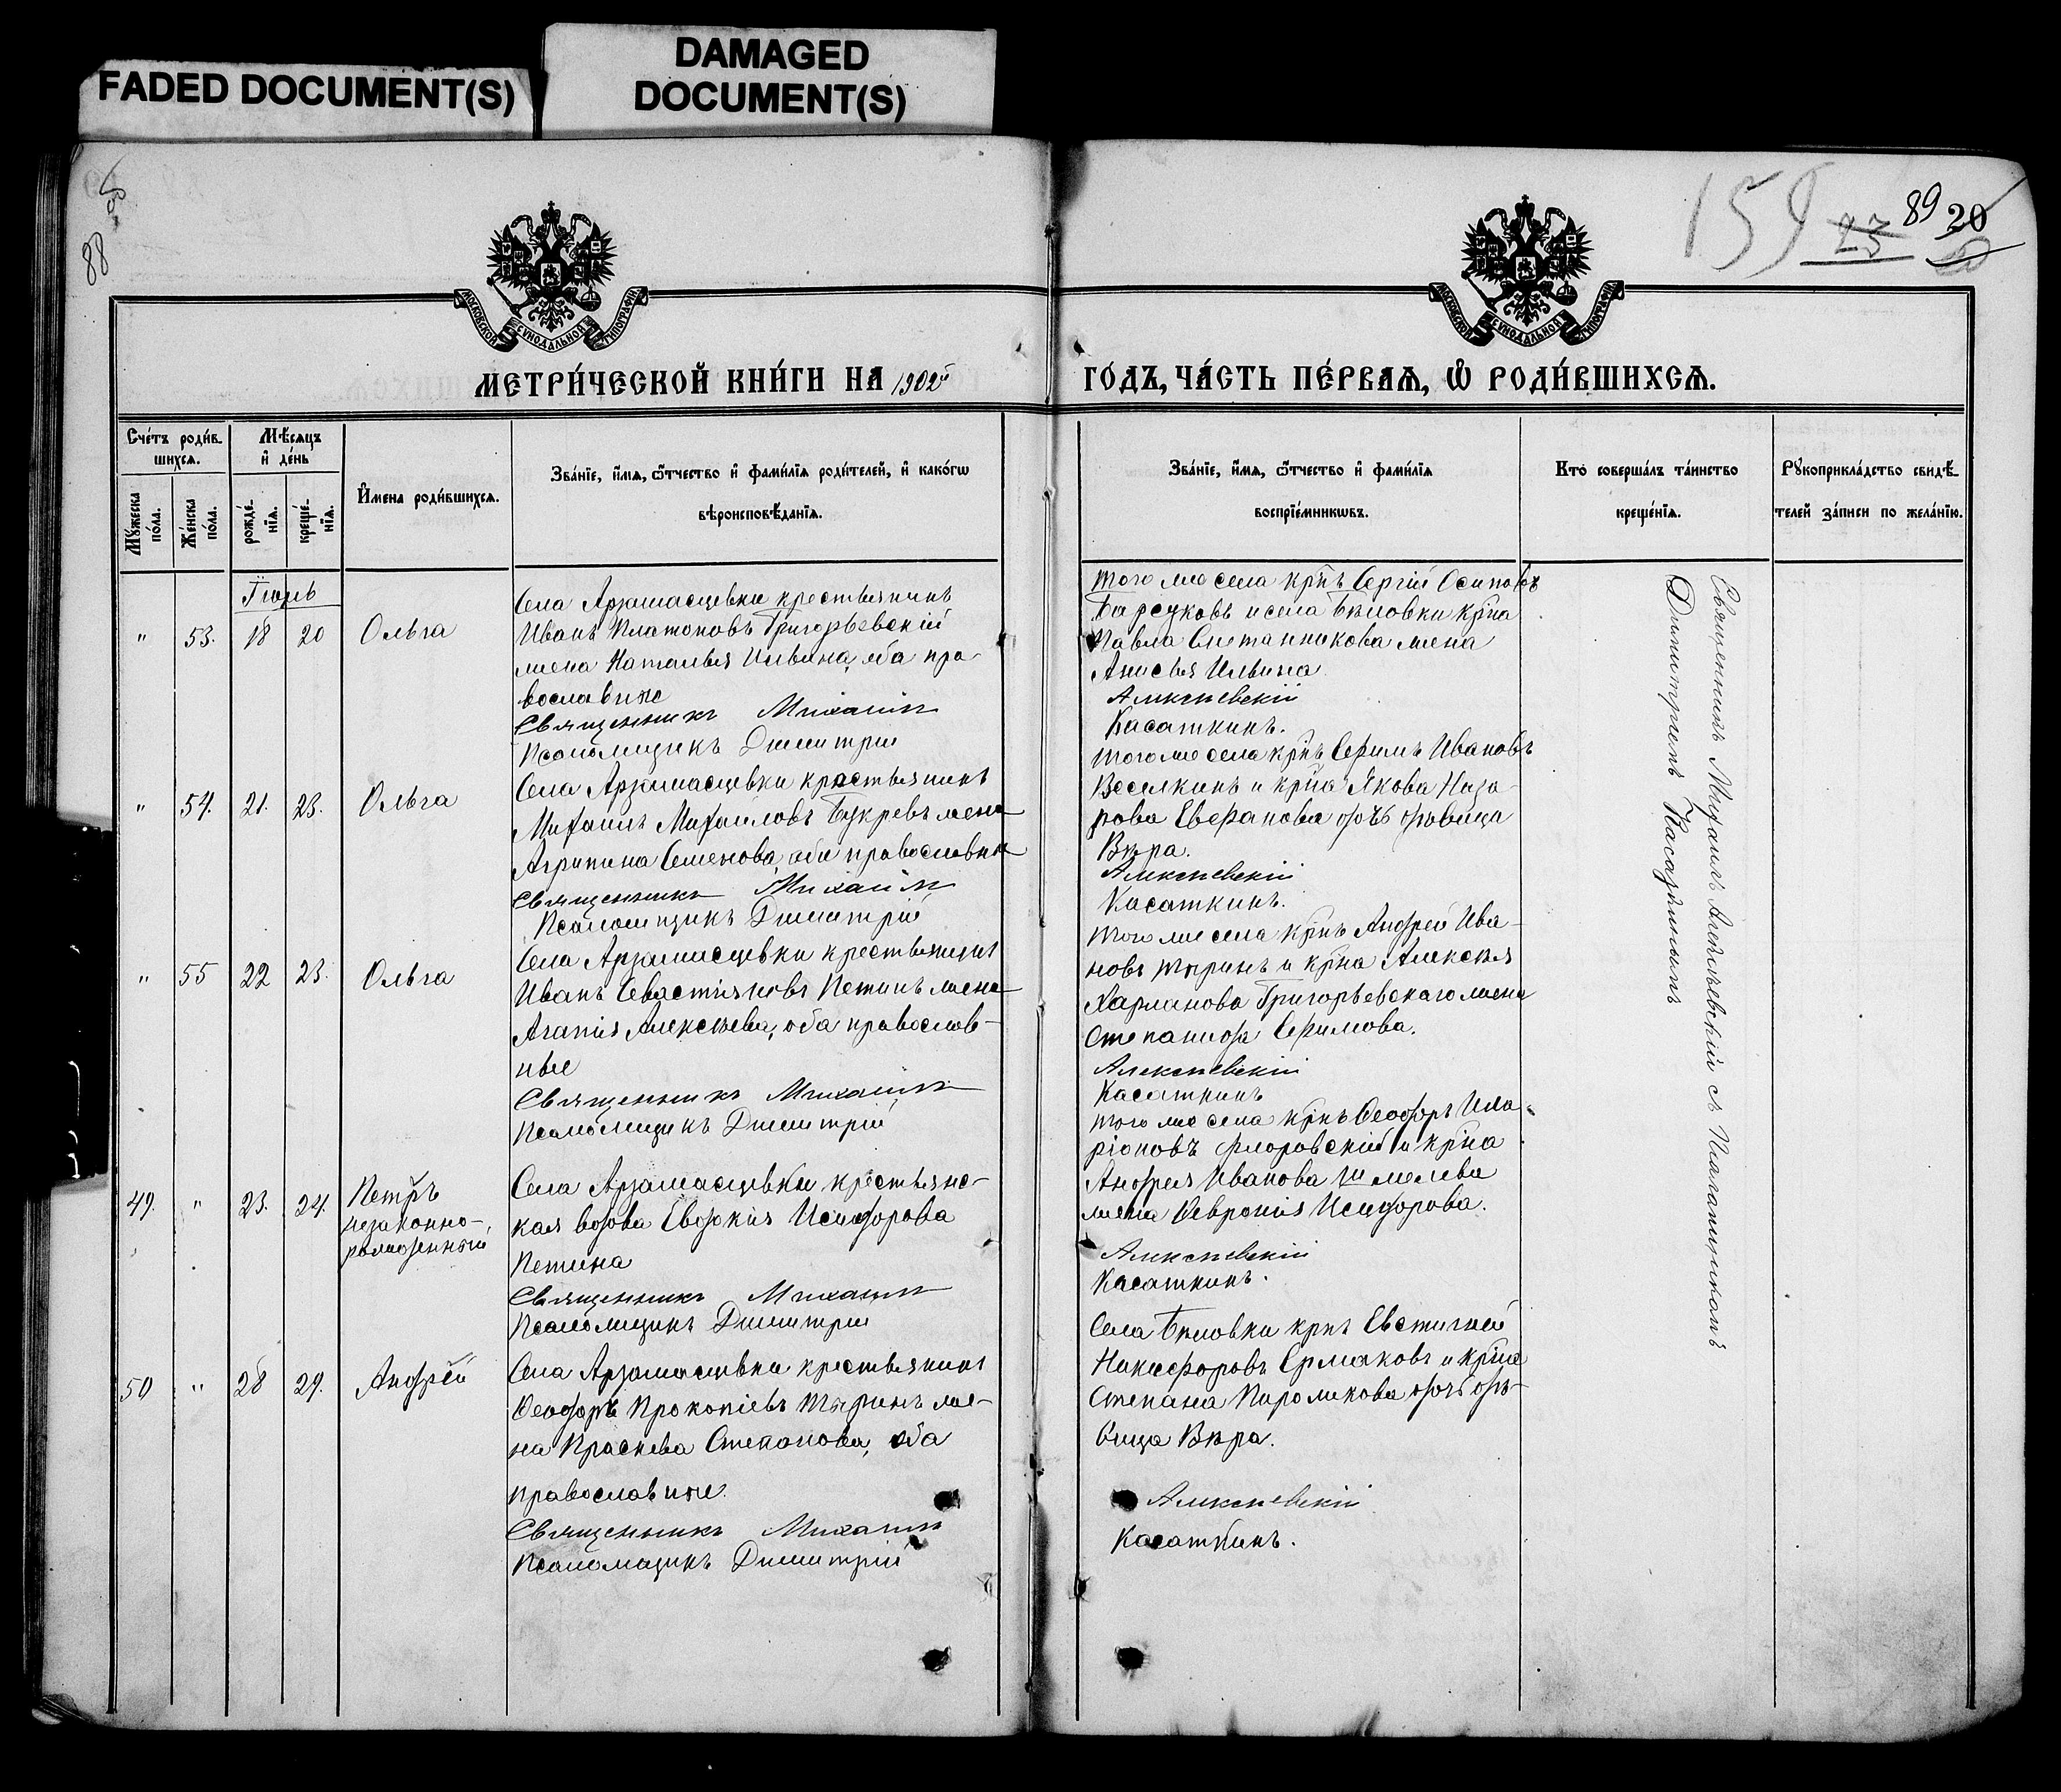 FADED DOCUMENT(S)
DAMAGED
DOCUMENT(S)
88
159 23 89 20
МОСКОВСКОЙ СУНОДАЛЬНОЙ ТИПОГРАФІИ
МОСКОВСКОЙ СУНОДАЛЬНОЙ ТИПОГРАФІИ
МЕТРИ́ЧЕСКОЙ КНИ́ГИ НА 1902й
ГО́ДЪ, ЧА́СТЬ ПЕ́РВАѦ, Ѡ҆ РОДИ́ВШИХСѦ.
Сче́тъ роди́в-
шихсѧ.
Мѣ́сѧцъ
и҆ де́нь
Мꙋ́жеска
по́ла.
Же́нска
по́ла.
рожде́-
нїѧ.
креще́-
нїѧ.
И҆мена роди́вшихсѧ.
Зва́нїе, и҆́мѧ, ѻ҆́тчество и҆ фами́лїѧ роди́телей, и҆ како́гѡ
вѣроисповѣ́данїѧ.
Зва́нїе, и҆́мѧ, ѻ҆́тчество и҆ фами́лїѧ
воспрїе́мникѡвъ.
Кто̀ соверша́лъ та́инство
креще́нїѧ.
Рꙋкоприкла́дство свидѣ́-
телей за́писи по жела́нїю.
Іюль
" 53. 18 20 Ольга
Села Арзамасцевки крестьянинъ
Иванъ Платоновъ Григорьевскій
жена Наталья Ильина, оба пра-
вославные
Священникъ Михаилъ
Псаломщикъ Димитрій
того же села крнъ Сергій Осиповъ
Барсуковъ и села Бѣловки крна
Павла Сметанникова жена
Анисья Ильина
Алексѣевскій
Касаткинъ.
" 54. 21. 23. Ольга
Села Арзамасцевки крестьянинъ
Михаилъ Михаиловъ Букревъ жена
Агрипина Семенова, оба православные
Священникъ Михаилъ
Псаломщикъ Димитрій
того же села крнъ Ефимъ Ивановъ
Веселкинъ и крна Якова Наза-
рова Еверанова дочь дѣвица
Вѣра.
Алексѣевскій
Касаткинъ.
" 55 22 23. Ольга
Села Арзамасцевки крестьянинъ
Иванъ Севастьяновъ Петинъ жена
Агапія Алексѣева, оба православ-
ные
Священникъ Михаилъ
Псаломщикъ Димитрій
того же села крнъ Андрей Ива-
новъ Тыринъ и крна Алексѣя
Харланова Григорьевскаго жена
Степанида Ефимова.
Алексѣевскій
Касаткинъ
49. " 23. 24. Петръ
незаконно-
рожденный
Села Арзамасцевки крестьянс-
кая вдова Евдокія Исидорова
Петина
Священникъ Михаилъ
Псаломщикъ Димитрій
того же села крнъ Ѳеодоръ Ила-
ріоновъ Флоровскій и крна
Андрея Иванова Шмелева
жена Ѳевронія Исидорова.
Алексѣевскій
Касаткинъ.
50 " 28 29. Андрей
Села Арзамасцевки крестьянинъ
Ѳеодоръ Прокопіевъ Тыринъ же-
на Праскева Степанова, оба
православные.
Священникъ Михаилъ
Псаломщикъ Димитрій
Села Бѣловки крнъ Евстигней
Никифоровъ Ермаковъ и крна
Степана Пирожкова дочь дѣ-
вица Вѣра.
Алексѣевскій
Касаткинъ.
Священникъ Михаилъ Алексѣевскій съ Псаломщикомъ
Димитріемъ Касаткинымъ